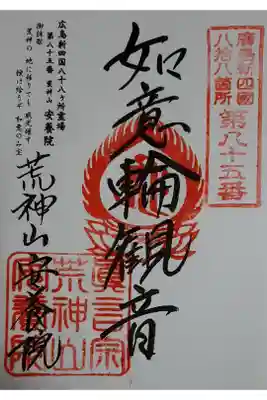 廣島新四國
八拾八箇所
第八十五番
如意輪観音
広島新四国八十八ヶ所霊場
第八十五番 荒神山 安養院
御詠歌
荒神の
荒神山 安養院
真言宗
荒神山
安養院